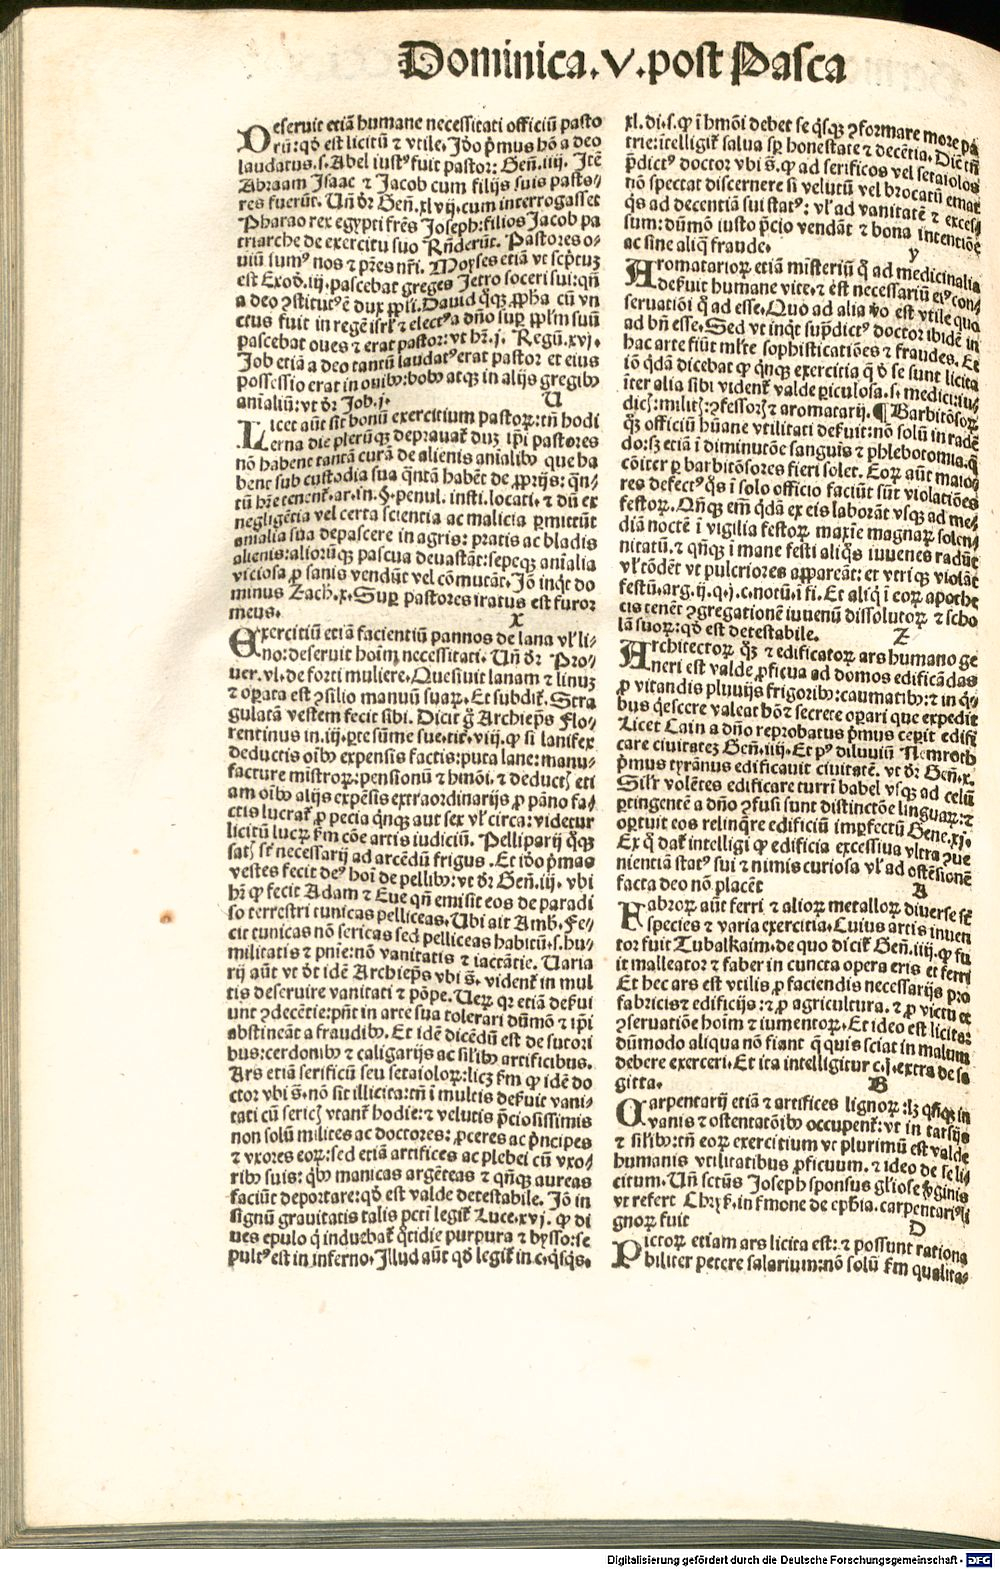 Dominica.V.post Pasca
Deseruit etiã humane necessitati officiũ pasto
rũ: qđ est licitũ ⁊ vtile. Iđo p̃mus hõ a deo
laudatus.s. Abel iustꝰ fuit pastor: Geñ.iiij. Itẽ
Abraam Isaac ⁊ Iacob cum filijs suis pasto⸗
res fuerũt. Uñ đr Geñ.xlvij. cum interrogasset
Pharao rex egypti frẽs Ioseph: filios Iacob pa
triarche de exercitu suo Rñderũt. Pastores o⸗
uiũ sumꝰ nos ⁊ pr̃es nr̃i. Moyses etiã vt scp̃tuꝫ
est Exođ.iij. pascebat greges Ietro soceri sui: qñ
a deo ꝯstitutꝰ ẽ dux ppl̃i. Dauid qͦꝫ ꝓpha cũ vn
ctus fuit in regẽ isrl̃ ⁊ electꝰ a dño sup ppl̃m suũ
pascebat oues ⁊ erat pastor: vt hr̃.j. Regũ.xvj.
Iob etiã a deo tantũ laudatꝰ erat pastor et eius
possessio erat in ouibꝰ: bobꝰ atqꝫ in alijs gregibꝰ
anialiũ: vt đr Iob.j. U
Licet aũt sit bonũ exercitium pastoꝝ: tñ hodi
erna die plerũqꝫ deprauat̃ duꝫ ip̃i pastores
nõ habent tantã curã de alienis anialibꝰ que ha
bent sub custodia sua q̃ntã habẽt de ꝓprijs: qñ⸗
tũ hr̃e tenent̃.ar.in.§.penul. insti. locati. ⁊ dũ ex
negligẽtia vel certa scientia ac malicia ꝑmittũt
animalia sua depascere in agris: pratis ac bladis
alienis: aliorũqꝫ pascua deuastãt: sepeqꝫ anialia
viciosa ꝓ sanis vendũt vel cõmutãt. Iõ inqͥt do
minus Zach.x. Suꝑ pastores iratus est furor
meus. x
Exercitiũ etiã facientiũ pannos de lana vl̃ li⸗
no: deseruit hoim̃ necessitati. Uñ đr Pro⸗
uer.vl. de forti muliere. Quesiuit lanam ⁊ linuꝫ
⁊ oꝑata est ꝯsilio manuũ suaꝝ. Et subdit̃. Stra
gulatã vestem fecit sibi. Dicit g̃ Archiep̃s Flo⸗
rentinus in.iij. ꝑte sũme sue.tit̃.viij. ꝙ si lanifex
deductis oĩbꝰ expensis factis: puta lane: manu⸗
facture mistroꝝ: pensionũ ⁊ hmõi. ⁊ deductꝭ eti
am oĩbꝰ alijs expẽsis extraordinarijs ꝓ pãno fa⸗
ctis lucrat̃ ꝓ pecia qͥnqꝫ aut sex vl̃ circa: videtur
licitũ lucꝝ fm̃ cõe artis iudiciũ. Pelliparij qͦꝫ
satꝭ st̃ necessarij ad arcẽdũ frigus. Et iđo p̃mas
vestes fecit deꝰ hoĩ de pellibꝰ: vt đr Geñ.iij. vbi
hr̃ ꝙ fecit Adam ⁊ Eue qñ emisit eos de paradi
so terrestri tunicas pelliceas. Ubi ait Amb. Fe⸗
cit tunicas nõ sericas sed pelliceas habitũ.s.hu⸗
militatis ⁊ pñie: nõ vanitatis ⁊ iactãtie. Uaria
rij aũt vt đt idẽ Archiep̃s vbi s̃. vident̃ in mul
tis deseruire vanitati ⁊ põpe. Ueꝝ qꝛ etiã deserui
unt ꝯdecẽtie: pñt in arte sua tolerari dũmõ ⁊ ip̃i
abstineãt a fraudibꝰ. Et idẽ dicẽdũ est de sutori
bus: cerdonibꝰ ⁊ caligarijs ac sil̃ibꝰ artificibus.
Ars etiã serificũ seu setaioloꝝ: licꝫ fm̃ ꝙ idẽ do
ctor vbi s̃. nõ sit illicita: tñ i multis deseruit vani⸗
tati cũ sericꝭ vtant̃ hodie: ⁊ velutis p̃ciosissimis
non solũ milites ac doctores: ꝓceres ac p̃ncipes
⁊ vxores eoꝝ: sed etiã artifices ac plebei cũ vxo⸗
ribꝰ suis: qͥbꝰ manicas argẽteas ⁊ qñqꝫ aureas
faciũt deportare: qđ est valde detestabile. Iõ in
signũ grauitatis talis pctĩ legit̃ Luce.xvj. ꝙ di
ues epulo q̃ induebat̃ qͦtidie purpura ⁊ bysso: se
pultꝰ est in inferno. Illud aũt qđ legit̃ in c. qͥsqͥs.
xl.di.s.ꝙ ĩ hmõi debet se qͥsqꝫ ꝯformare more pa
trie: itelligit̃ salua sꝑ honestate ⁊ decẽtia. Dic̃ tñ
p̃dictꝰ doctor vbi s̃. ꝙ ad serificos vel setaiolos
nõ spectat discernere si velutũ vel brocatũ emat
qͥs ad decentiã sui statꝰ: vl̃ ad vanitatẽ ⁊ exces⸗
sum: dũmõ iusto p̃cio vendãt ⁊ bona intentiõe
ac sine aliq̃ fraude. y
Aromatarioꝝ etiã misteriũ q̃ ad medicinalia
deseruit humane vite. ⁊ ẽst necessariũ eiꝰ con⸗
seruatiõi q̃ ad esse. Quo ad alia ꝟo est vtile quo
ad bñ esse. Sed vt inqͥt sup̃dictꝰ doctor ibidẽ in
hac arte fiũt ml̃te sophisticatiões ⁊ fraudes. Et
iõ qͥdã dicebat ꝙ qͥnqꝫ exercitia q̃ đ se sunt licita
iter alia sibi vident̃ valde ꝑiculosa.s. medici: iu⸗
dicꝭ: militꝭ: ꝯfessorꝭ ⁊ aromatarij. ¶ Barbitõsoꝝ
qͦꝫ officiũ hũane vtilitati deseruit: nõ solũ in radẽ
do: sꝫ etiã ĩ diminutõe sanguĩs ⁊ phlebotomia. q̃
cõiter ꝑ barbitõsores fieri solet. Eoꝝ aũt maio⸗
res defectꝰ qͦs i solo officio faciũt sũt violatiões
festoꝝ. Qñqꝫ em̃ qͥdã ex eis laborãt vsqꝫ ad me⸗
diã noctẽ ĩ vigilia festoꝝ maxĩe magnaꝝ solen⸗
nitatũ. ⁊ qñqꝫ ĩ mane festi aliqͦs iuuenes radũt
vl̃ tõdẽt vt pulcriores appareãt: et vtriqꝫ violãt
festũ. arg.ij.q.j.c.notũ.i fi. Et aliqͥ ĩ eoꝝ apothe
cis tenẽt ꝯgregationẽ iuuenũ dissolutoꝝ ⁊ scho
lã suoꝝ: qđ est detestabile. Z
Architectoꝝ qͦꝫ ⁊ edificatoꝝ ars humano ge
neri est valde ꝓficua ad domos edificãdas
ꝓ vitandis pluuijs frigoribꝰ: caumatibꝰ: ⁊ in qͥ⸗
bus qͥescere valeat hõ ⁊ secrete oꝑari que expedit
Licet Cain a dño reprobatus p̃mus ceꝑit edifi
care ciuitateꝫ Geñ.iiij. Et pꝰ diluuiũ Nemroth
p̃mus tyrãnus edificauit ciuitatẽ. vt đr Geñ.x.
Sil̃r volẽtes edificare turri babel vsqꝫ ad celũ
ꝑtingentẽ a dño ꝯfusi sunt distinctõe linguaꝝ: ⁊
oꝑtuit eos relinq̃re edificiũ imꝑfectũ Gene.xj.
Ex q̃ dat̃ intelligi ꝙ edificia excessiua vltra ꝯue
nientiã statꝰ sui ⁊ nimis curiosa vl̃ ad ostẽsionẽ
facta deo nõ placẽt A
Fabroꝝ aũt ferri ⁊ alioꝝ metalloꝝ diuerse st̃
species ⁊ varia exercitia. Cuius artis inuen
tor fuit Tubalkaim. de quo dicit̃ Geñ.iiij. ꝙ fu
it malleator ⁊ faber in cuncta opera eris et ferri
Et hec ars est vtilis ꝓ faciendis necessarijs pro
fabricis ⁊ edificijs: ⁊ ꝓ agricultura. ⁊ ꝓ victu et
ꝯseruatiõe hoĩm ⁊ iumentoꝝ. Et ideo est licita:
dũmodo aliqua nõ fiant q̃ quis sciat in malum
debere exerceri. Et ita intelligitur c.j. extra de sa
gitta. B
Carpentarij etiã ⁊ artifices lignoꝝ: lꝫ qñqꝫ in
vanis ⁊ ostentatõibꝰ occupent̃: vt in tarsijs
⁊ sil̃ibꝰ: tñ eoꝝ exercitium vt plurimũ est valde
humanis vtilitatibus ꝓficuum. ⁊ ideo de se li⸗
citum. Uñ sctũs Ioseph sponsus gl̃iose ꝟginis
vt refert Chryẜ. in ẜmone de epħia. carpentariꝰ li
gnoꝝ fuit D
Pictoꝝ etiam ars licita est: ⁊ possunt rationa
biliter petere salarium: nõ solũ fm̃ qualita⸗
Digitalisierung gefördert durch die Deutsche Forschungsgemeinschaft - DFG